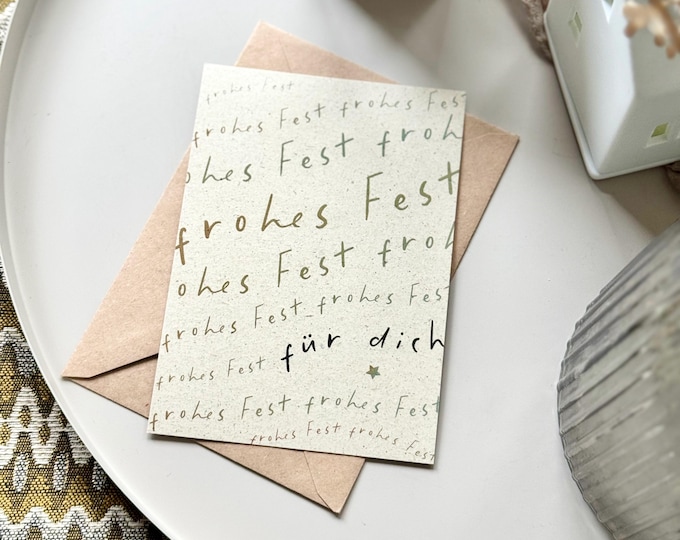 frohes Fest
frohes Fest frohes Fest
ohes Fest froh
frohes Fest
ohes Fest froh
frohes Fest frohes Fest
frohes Fest für dich
frohes Fest frohes Fest
frohes Fest frohes Fest